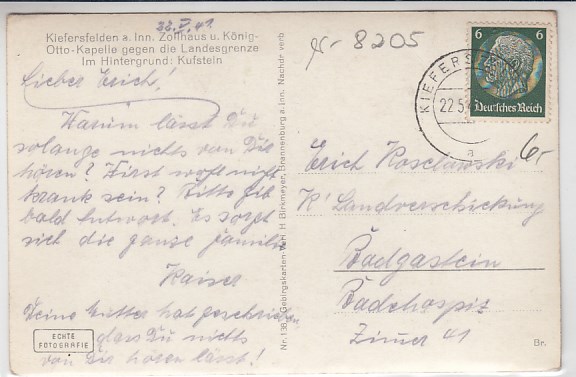 22.V.41
Kiefersfelden a. Inn. Zollhaus u. König-
Otto-Kapelle gegen die Landesgrenze
Im Hintergrund: Kufstein
Lieber Erich!
Warum lässt Du
solange nichts von Dir
hören? Wirst wohl nicht
krank sein? Bitte gib
bald Antwort. Es sorgt
sich die ganze Familie
Kaiser
Deine Mutter hat geschrieben
dass Du nichts
von Dir hören lässt!
ECHTE
FOTOGRAFIE
Gebirgskarten-Verl. H. Birkmeyer, Brannenburg a. Inn. Nachdr. verb.
8205
6 6
Deutsches Reich
KIEFERS
22.5
a
6,-
Erich Roselawski
K' Landverschickung
Badgastein
Badehospiz
Zimmer 41
Br.